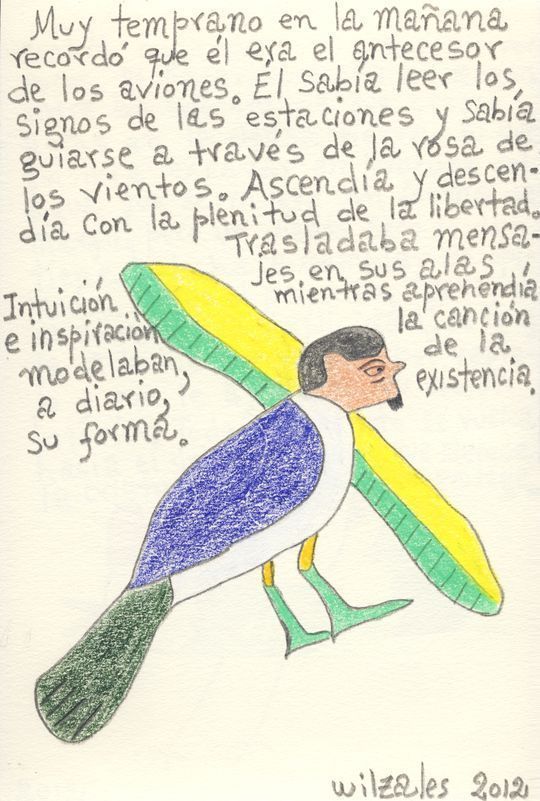 Muy temprano en la mañana
recordó que él era el antecesor
de los aviones. Él sabía leer los
signos de las estaciones y sabía
guiarse a través de la rosa de
los vientos. Ascendía y descen-
día con la plenitud de la libertad.
Trasladaba mensa-
jes en sus alas
mientras aprehendía
la canción
de la
existencia.
Intuición
e inspiración
modelaban,
a diario,
su forma.
wilzales 2012